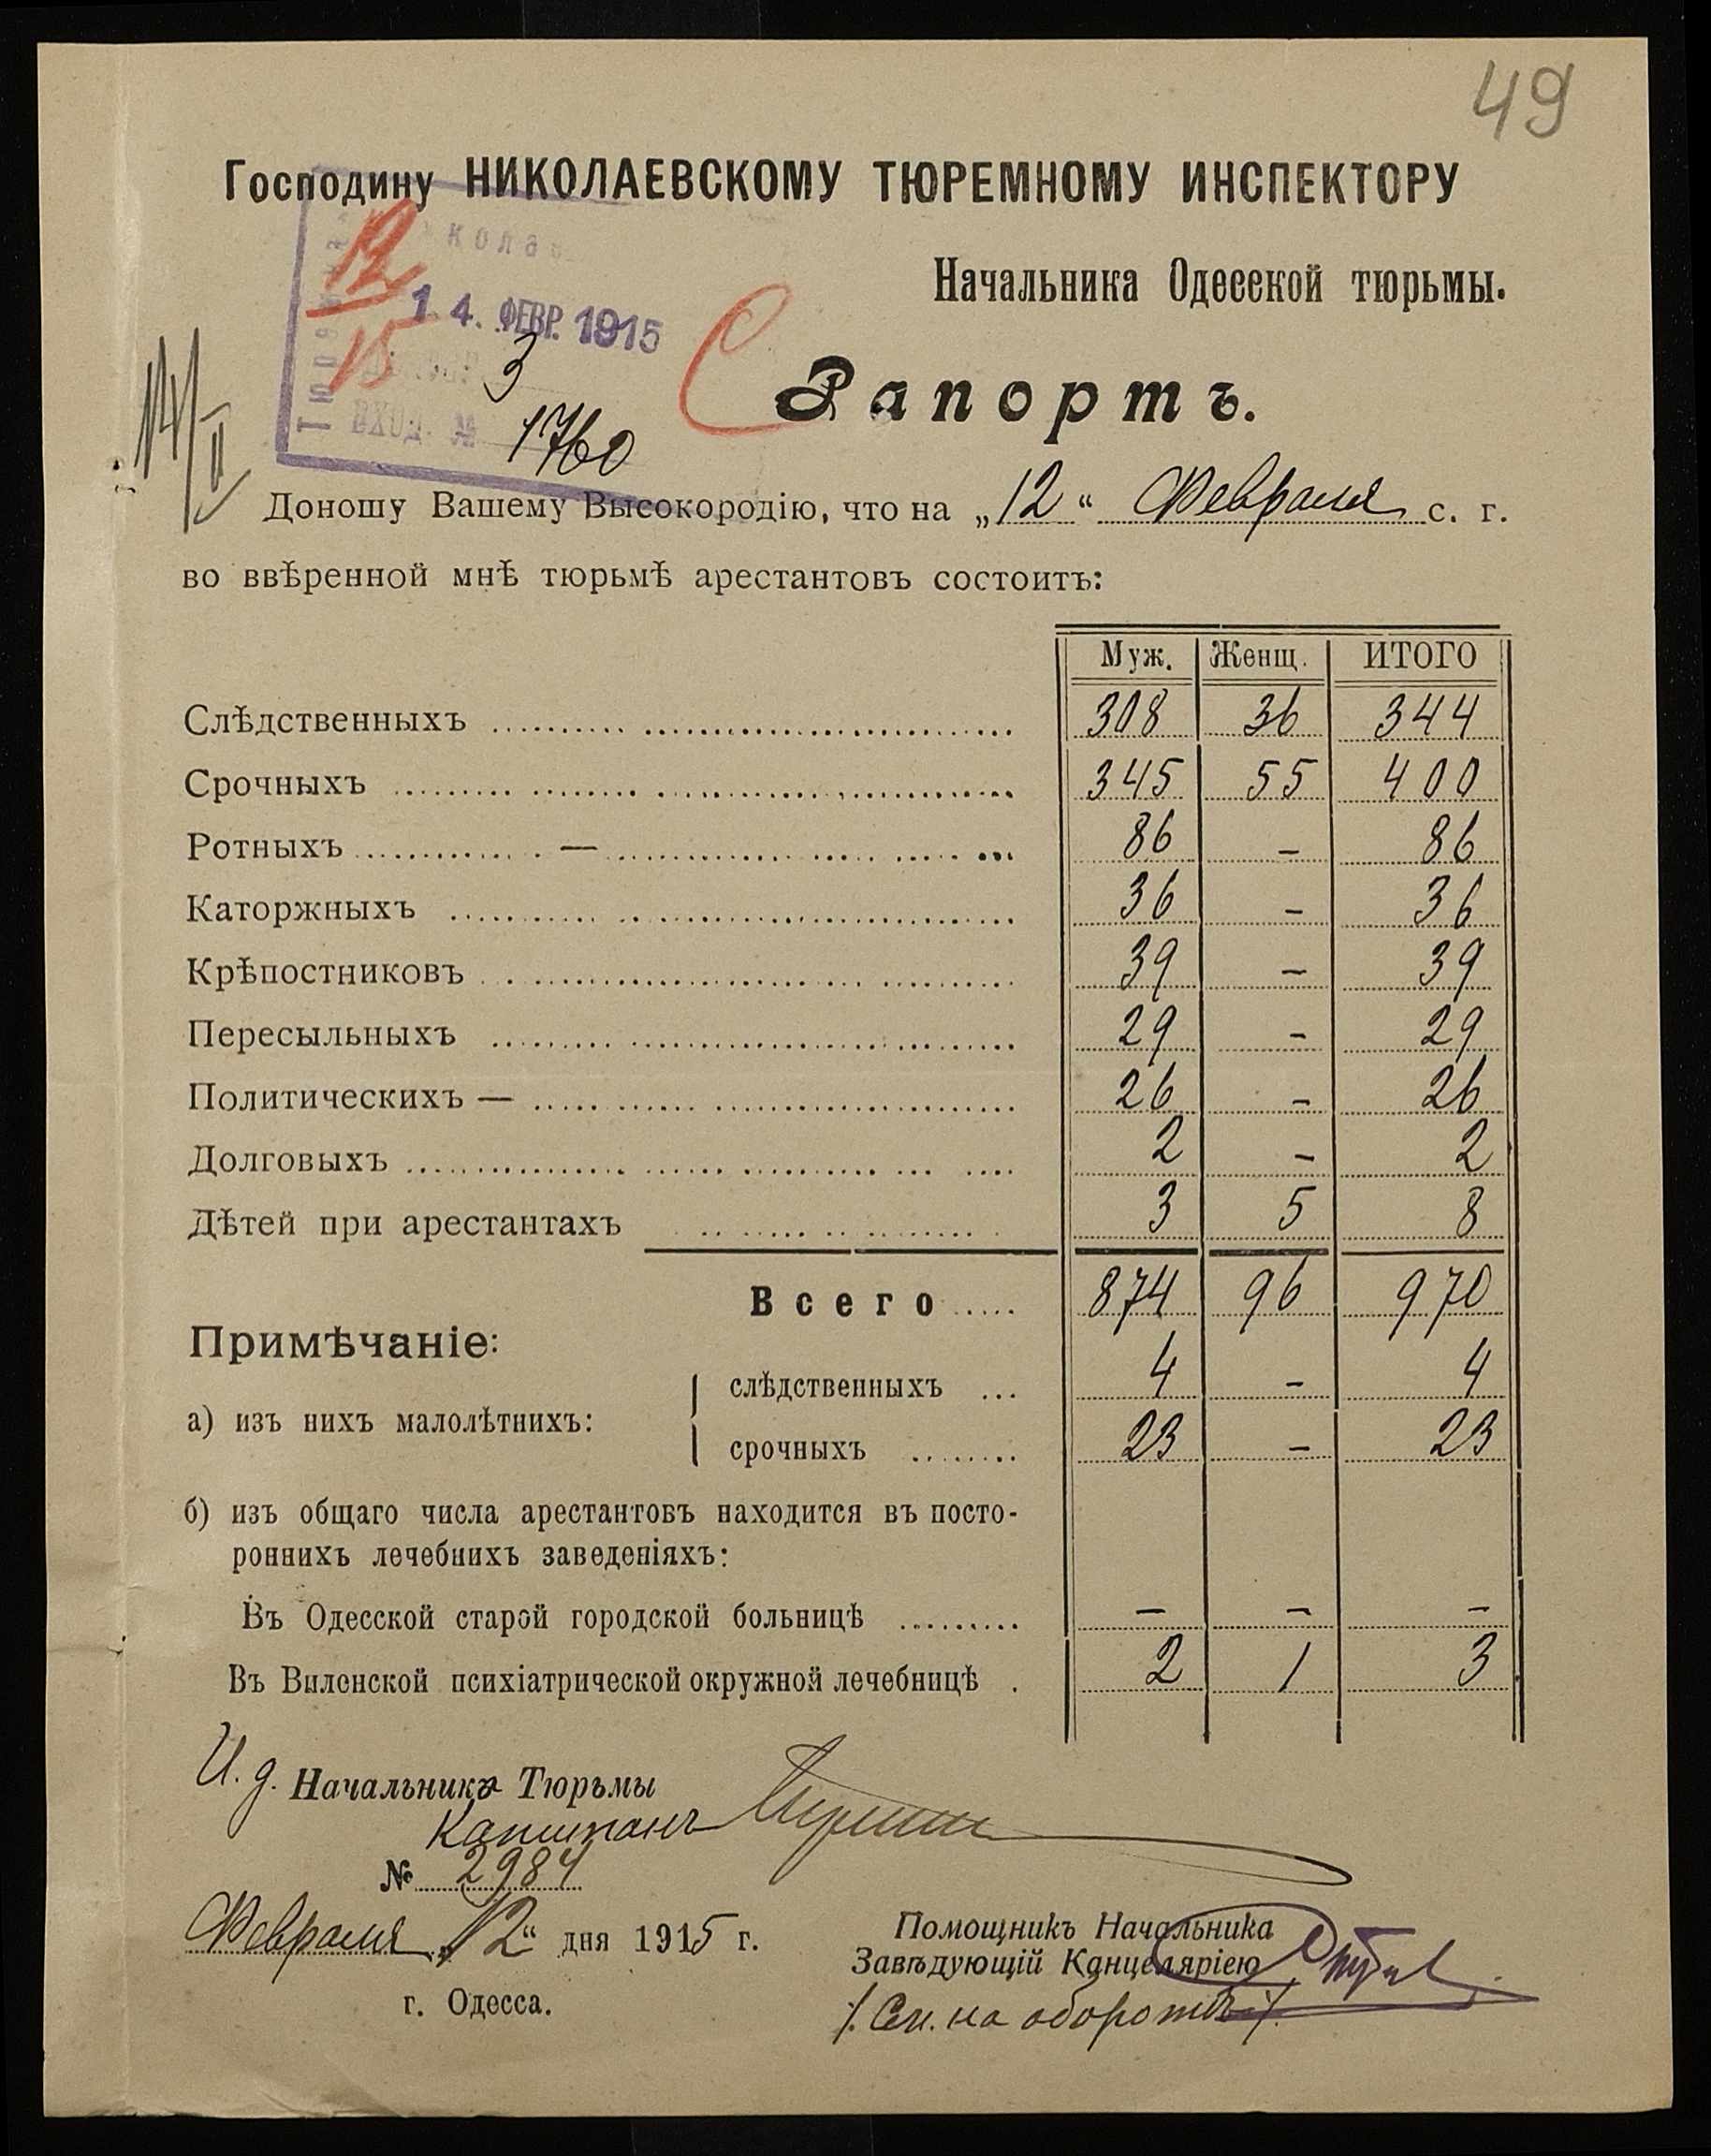 49
Господину НИКОЛАЕВСКОМУ ТЮРЕМНОМУ ИНСПЕКТОРУ
Начальника Одесской тюрьмы.
14. ФЕВР. 1915
3
ВХОД. № 1760
14/II
Рапортъ.
Доношу Вашему Высокородію, что на „12“ Февраля с. г.
во ввѣренной мнѣ тюрьмѣ арестантовъ состоитъ:
Муж. Женщ. ИТОГО
Слѣдственныхъ 308 36 344
Срочныхъ 345 55 400
Ротныхъ — 86 - 86
Каторжныхъ 36 - 36
Крѣпостниковъ 39 - 39
Пересыльныхъ 29 - 29
Политическихъ — 26 - 26
Долговыхъ 2 - 2
Дѣтей при арестантахъ 3 5 8
Всего 874 96 970
Примѣчаніе:
а) изъ нихъ малолѣтнихъ: слѣдственныхъ 4 - 4
срочныхъ 23 - 23
б) изъ общаго числа арестантовъ находится въ посто-
роннихъ лечебнихъ заведеніяхъ:
Въ Одесской старой городской больницѣ - - -
Въ Виленской психіатрической окружной лечебницѣ 2 1 3
И. д. Начальника Тюрьмы
Капитанъ
№ 2984
Февраля „12“ дня 1915 г.
г. Одесса.
Помощникъ Начальника
Завѣдующій Канцеляріею
/. См. на оборотѣ ./